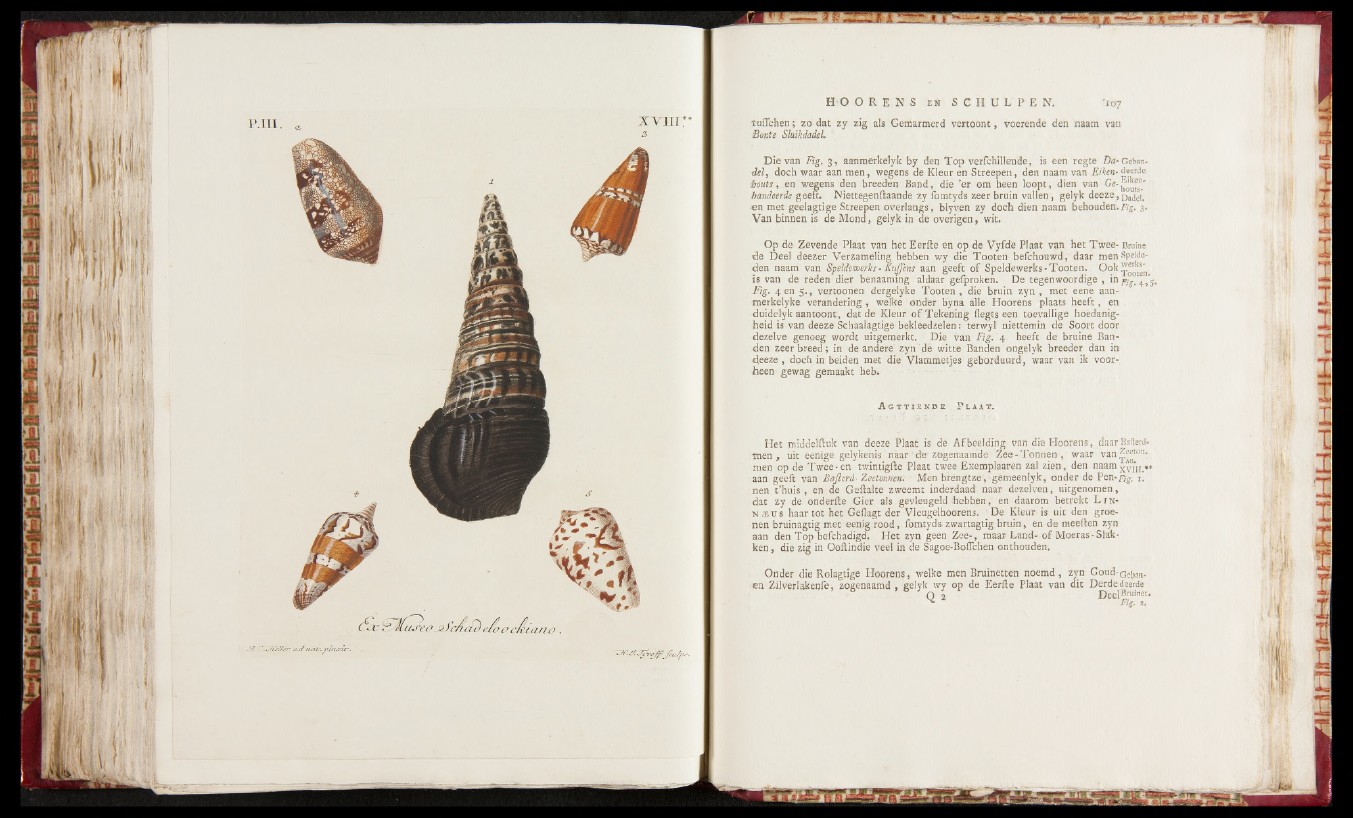 P.III.
XVIII.**
2
3
1
4
5
Ex Museo Schadeloockiano.
ad nat. pinxit.
sculps.
HOORENS EN SCHULPEN. 107
tuſſchen; zo dat zy zig als Gemarmerd vertoont, voerende den naam van
Bonte Sluikdadel.
Die van Fig. 3, aanmerkelyk by den Top verſchillende, is een regte Da-
del, doch waar aan men, wegens de Kleur en Streepen, den naam van Eiken-
houts, en wegens den breeden Band, die 'er om heen loopt, dien van Ge-
bandeerde geeft. Niettegenſtaande zy ſomtyds zeer bruin vallen, gelyk deeze,
en met geelagtige Streepen overlangs, blyven zy doch dien naam behouden.
Van binnen is de Mond, gelyk in de overigen, wit.
Geban-
deerde
Eiken-
houts-
Dadel.
Fig. 3.
Op de Zevende Plaat van het Eerſte en op de Vyfde Plaat van het Twee-
de Deel deezer Verzameling hebben wy die Tooten beſchouwd, daar men
den naam van Speldewerks-Kuſſens aan geeft of Speldewerks-Tooten. Ook
is van de reden dier benaaming aldaar geſproken. De tegenwoordige, in
Fig. 4 en 5., vertoonen dergelyke Tooten, die bruin zyn, met eene aan-
merkelyke verandering, welke onder byna alle Hoorens plaats heeft, en
duidelyk aantoont, dat de Kleur of Tekening ſlegts een toevallige hoedanig-
heid is van deeze Schaalagtige bekleedzelen: terwyl niettemin de Soort door
dezelve genoeg wordt uitgemerkt. Die van Fig. 4 heeft de bruine Ban-
den zeer breed; in de andere zyn de witte Banden ongelyk breeder dan in
deeze, doch in beiden met die Vlammetjes geborduurd, waar van ik voor-
heen gewag gemaakt heb.
Bruine
Spelde-
werks-
Tooten.
Fig. 4, 5.
AGTTIENDE PLAAT.
Het middelſtuk van deeze Plaat is de Afbeelding van die Hoorens, daar
men, uit eenige gelykenis naar de zogenaamde Zee-Tonnen, waar van
men op de Twee-en twintigſte Plaat twee Exemplaaren zal zien, den naam
aan geeft van Baſterd-Zeetonnen. Men brengtze, gemeenlyk, onder de Pen-
nen t'huis, en de Geſtalte zweemt inderdaad naar dezelven, uitgenomen,
dat zy de onderſte Gier als gevleugeld hebben, en daarom betrekt LIN-
NÆUS haar tot het Geſlagt der Vleugelhoorens. De Kleur is uit den groe-
nen bruinagtig met eenig rood, ſomtyds zwartagtig bruin, en de meeſten zyn
aan den Top beſchadigd. Het zyn geen Zee-, maar Land- of Moeras-Slak-
ken, die zig in Ooſtindie veel in de Sagoe-Boſſchen onthouden.
Baſterd-
Zeeton.
TAB.
XVIII.**
Fig. 1.
Onder die Rolagtige Hoorens, welke men Bruinetten noemd, zyn Goud-
en Zilverlakenſe, zogenaamd, gelyk wy op de Eerſte Plaat van dit Derde
Q 2 Deel
Geban-
deerde
Bruinet.
Fig. 2.